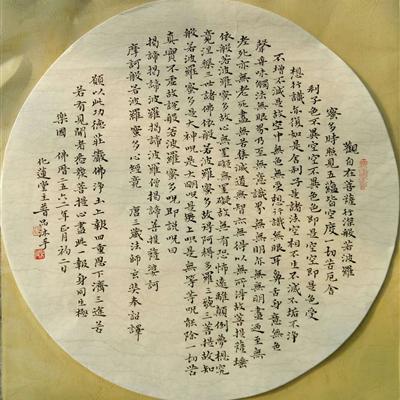 觀自在菩薩行深般若波羅
蜜多時照見五蘊皆空度一切苦厄舍
利子色不異空空不異色色即是空空即是色受
想行識亦復如是舍利子是諸法空相不生不滅不垢不淨
不增不減是故空中無色無受想行識無眼耳鼻舌身意無色
聲香味觸法無眼界乃至無意識界無無明亦無無明盡乃至無
老死亦無老死盡無苦集滅道無智亦無得以無所得故菩提薩埵
依般若波羅蜜多故心無罣礙無罣礙故無有恐怖遠離顛倒夢想究
竟涅槃三世諸佛依般若波羅蜜多故得阿耨多羅三藐三菩提故知
般若波羅蜜多是大神咒是大明咒是無上咒是無等等咒能除一切苦
真實不虛故說般若波羅蜜多咒即說咒曰
揭諦揭諦波羅揭諦波羅僧揭諦菩提薩婆訶
摩訶般若波羅蜜多心經 唐三藏法師玄奘奉詔譯
願以此功德莊嚴佛淨土上報四重恩下濟三途苦
若有見聞者悉發菩提心盡此一報身同生極
樂國 佛曆二五六二年正月初二日
化蓮堂主普呂沐手